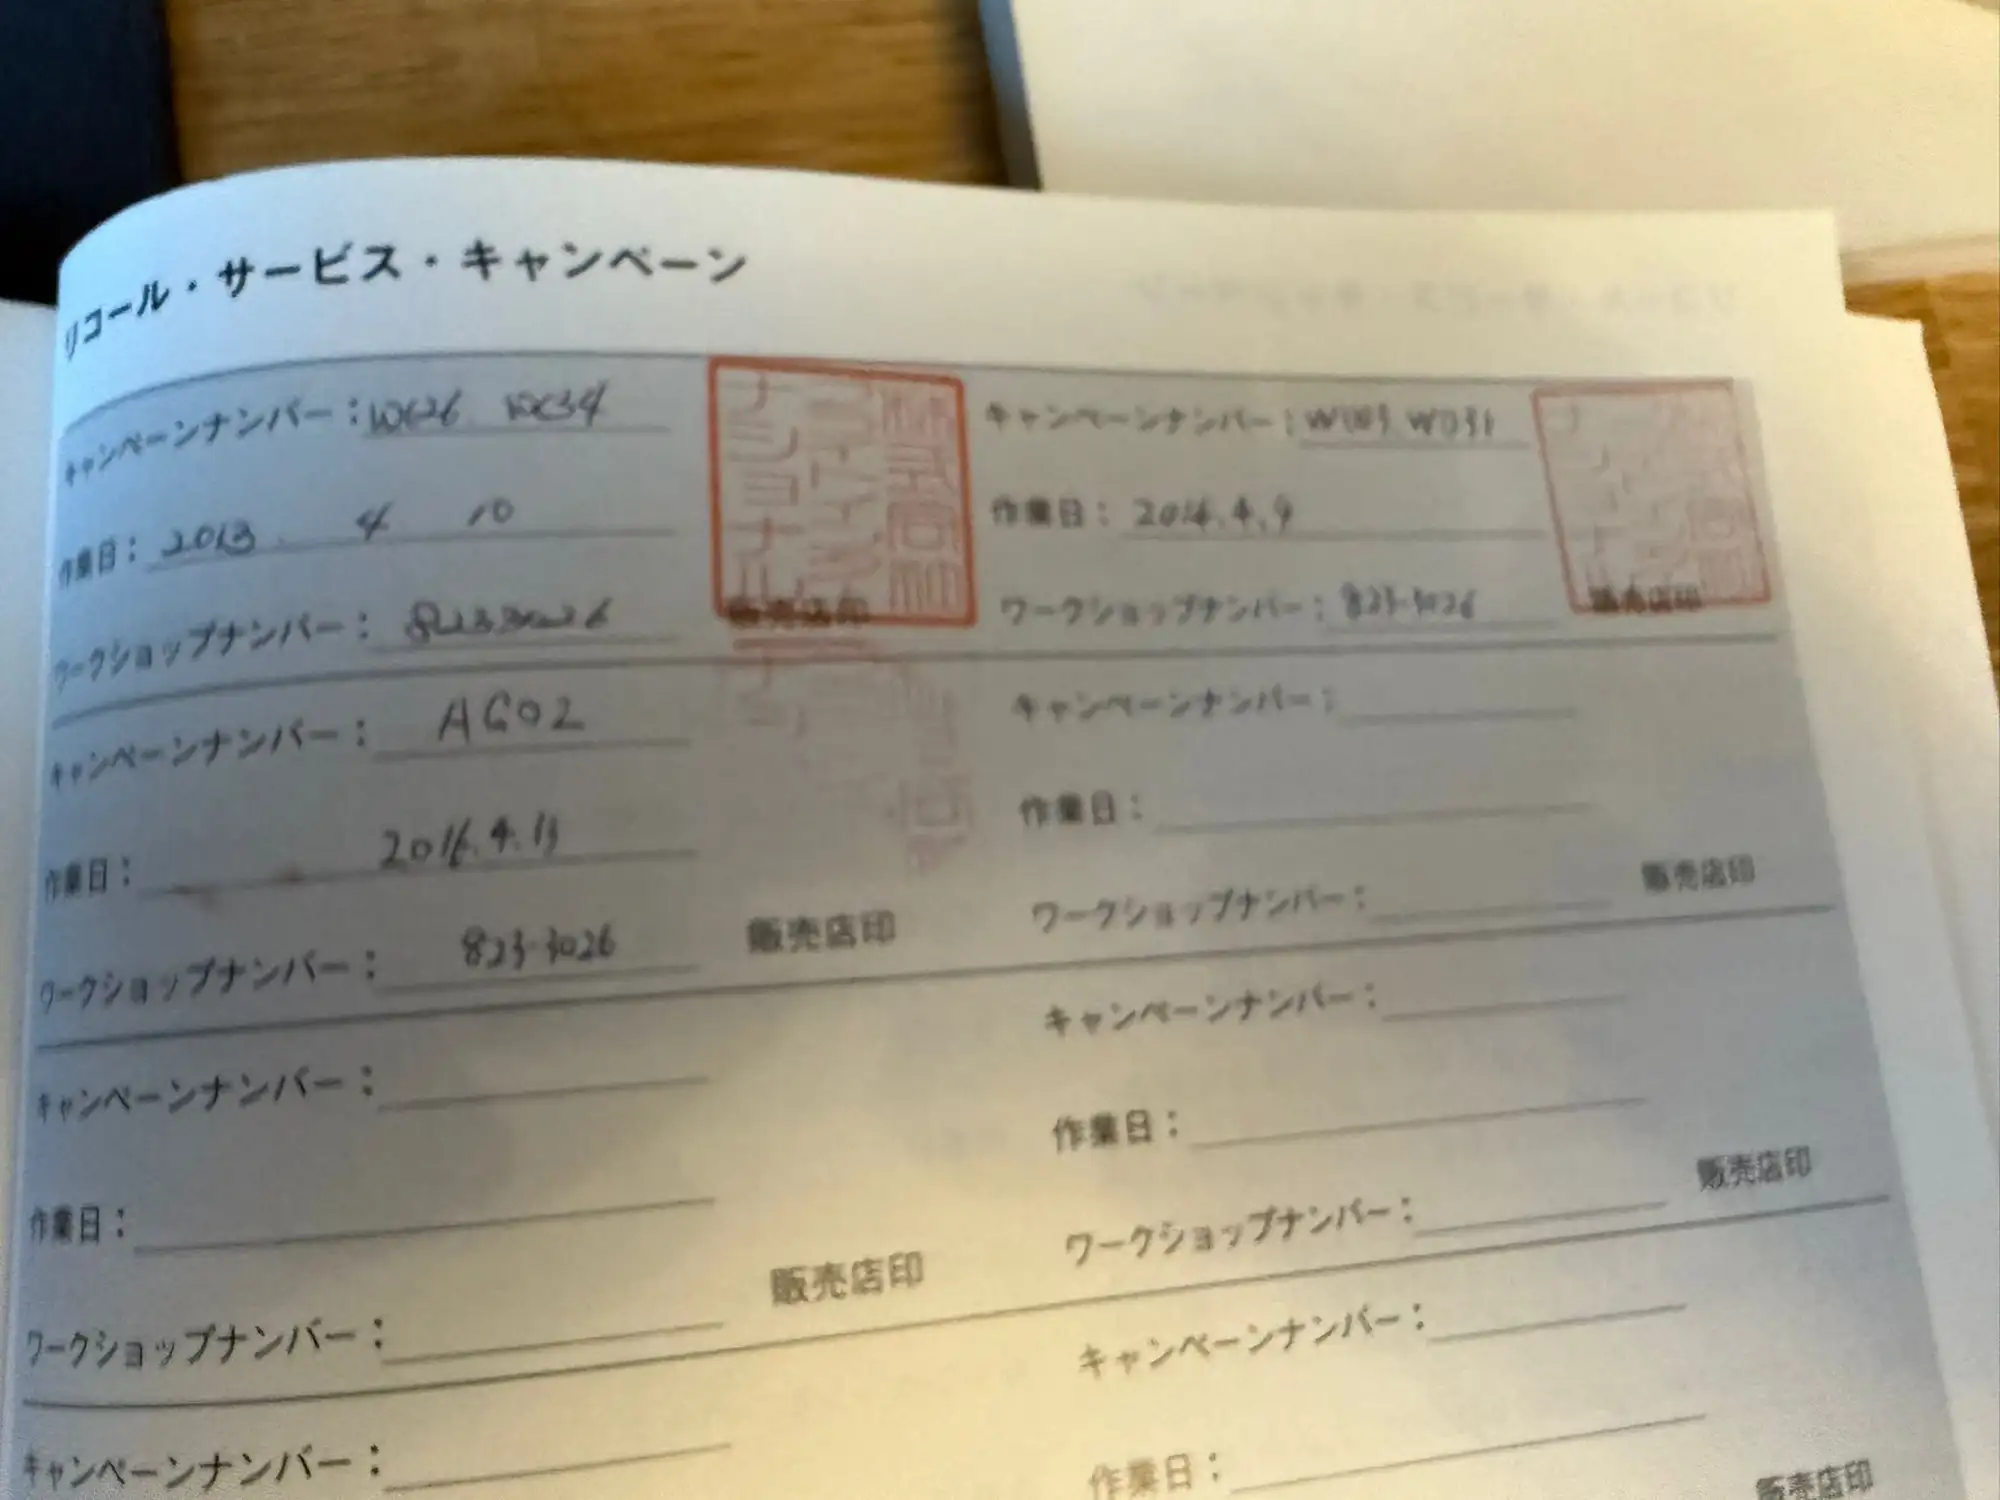 リコール・サービス・キャンペーン
キャンペーンナンバー：
作業日：2013. 4 10
ワークショップナンバー：8233026
販売店印
キャンペーンナンバー：
作業日：2014.4.9
ワークショップナンバー：823-3026
販売店印
キャンペーンナンバー：AG02
作業日：2016.4.13
ワークショップナンバー：823-3026
販売店印
キャンペーンナンバー：
作業日：
ワークショップナンバー：
販売店印
キャンペーンナンバー：
作業日：
ワークショップナンバー：
販売店印
キャンペーンナンバー：
作業日：
ワークショップナンバー：
販売店印
キャンペーンナンバー：
キャンペーンナンバー：
作業日：
販売店印